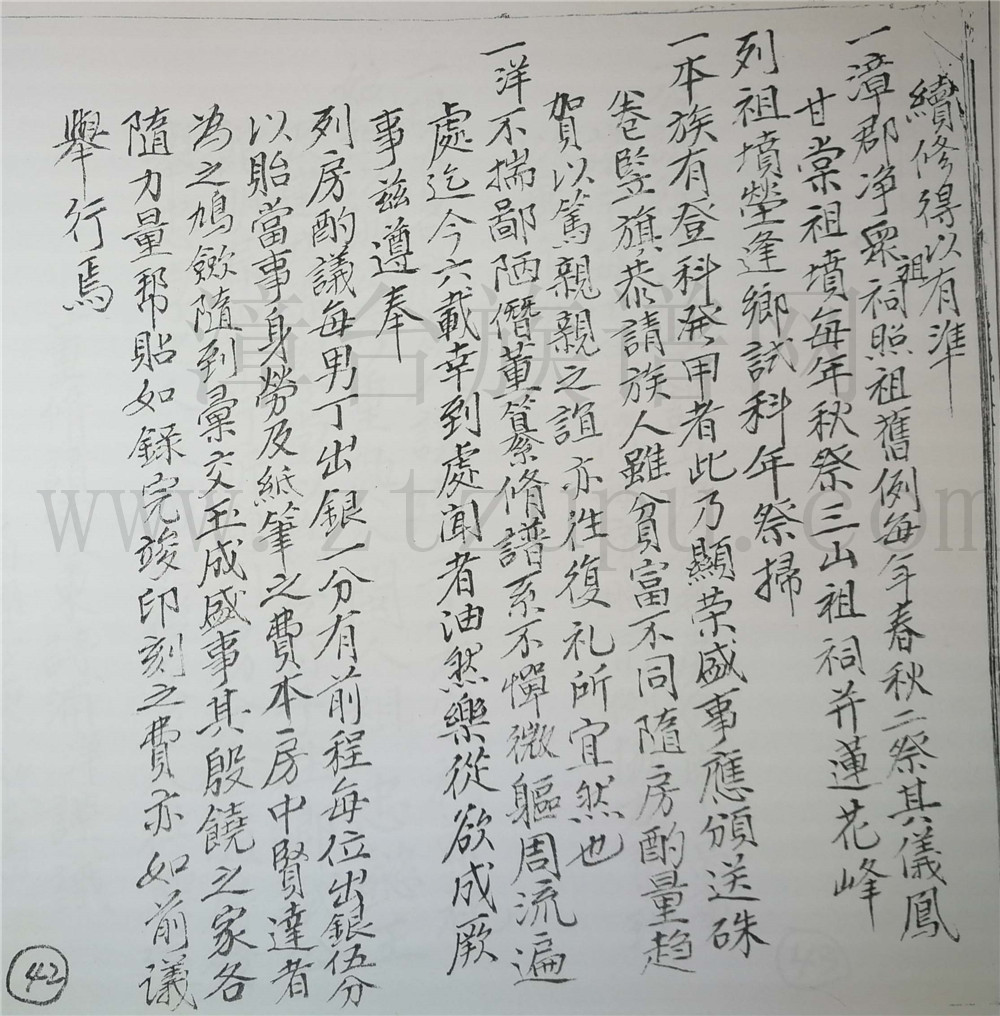 續修得以有準
一漳郡净眾祠照祖舊例每年春秋二祭其儀鳳
祖
甘棠祖墳每年秋祭三山祖祠并蓮花峰
列祖墳塋逢鄉試科年祭掃
一本族有登科発甲者此乃顯荣盛事應頒送硃
卷竪旗恭請族人雖貧富不同隨房酌量趋
賀以篤親親之誼亦往復礼所宜然也
一洋不揣鄙陋僭董纂脩譜系不憚微軀周流遍
處迄今六載幸到處闻者油然樂從欲成厥
事茲遵奉
列房酌議每男丁出銀一分有前程每位出銀伍分
以貽當事身勞及紙筆之費本房中賢達者
為之鳩歛隨到彙交玉成盛事其殷饒之家各
隨力量帮貼如録完竣印刻之費亦如前議
舉行焉
42
漳台族谱网
www.ztzupu.com